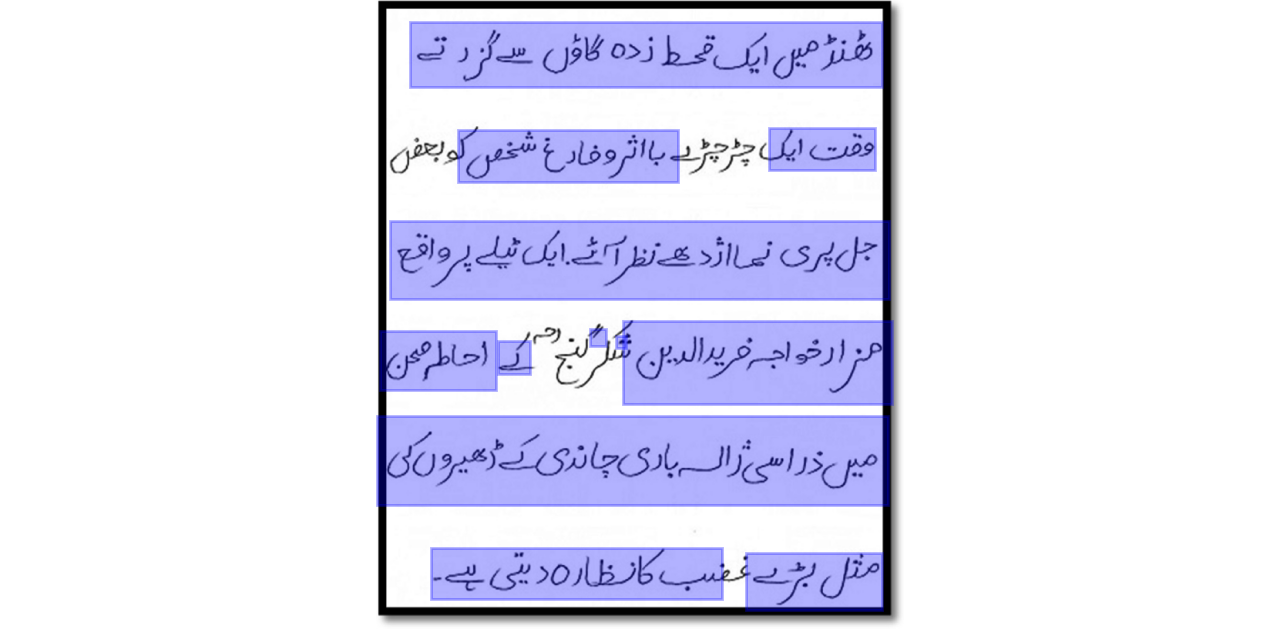 ٹھنڈ میں ایک قحط زدہ گاؤں سے گزرتے
وقت ایک چڑچڑے بااثر و فارغ شخص کو بعض
جل پری نما اژدھے نظر آئے۔ ایک ٹیلے پر واقع
مزار خواجہ فریدالدین شکر گنجؒ کے احاطہ صحن
میں ذرا سی ژالہ باری چاندی کے ڈھیروں کی
مثل بڑے غضب کا نظارہ دیتی ہے۔